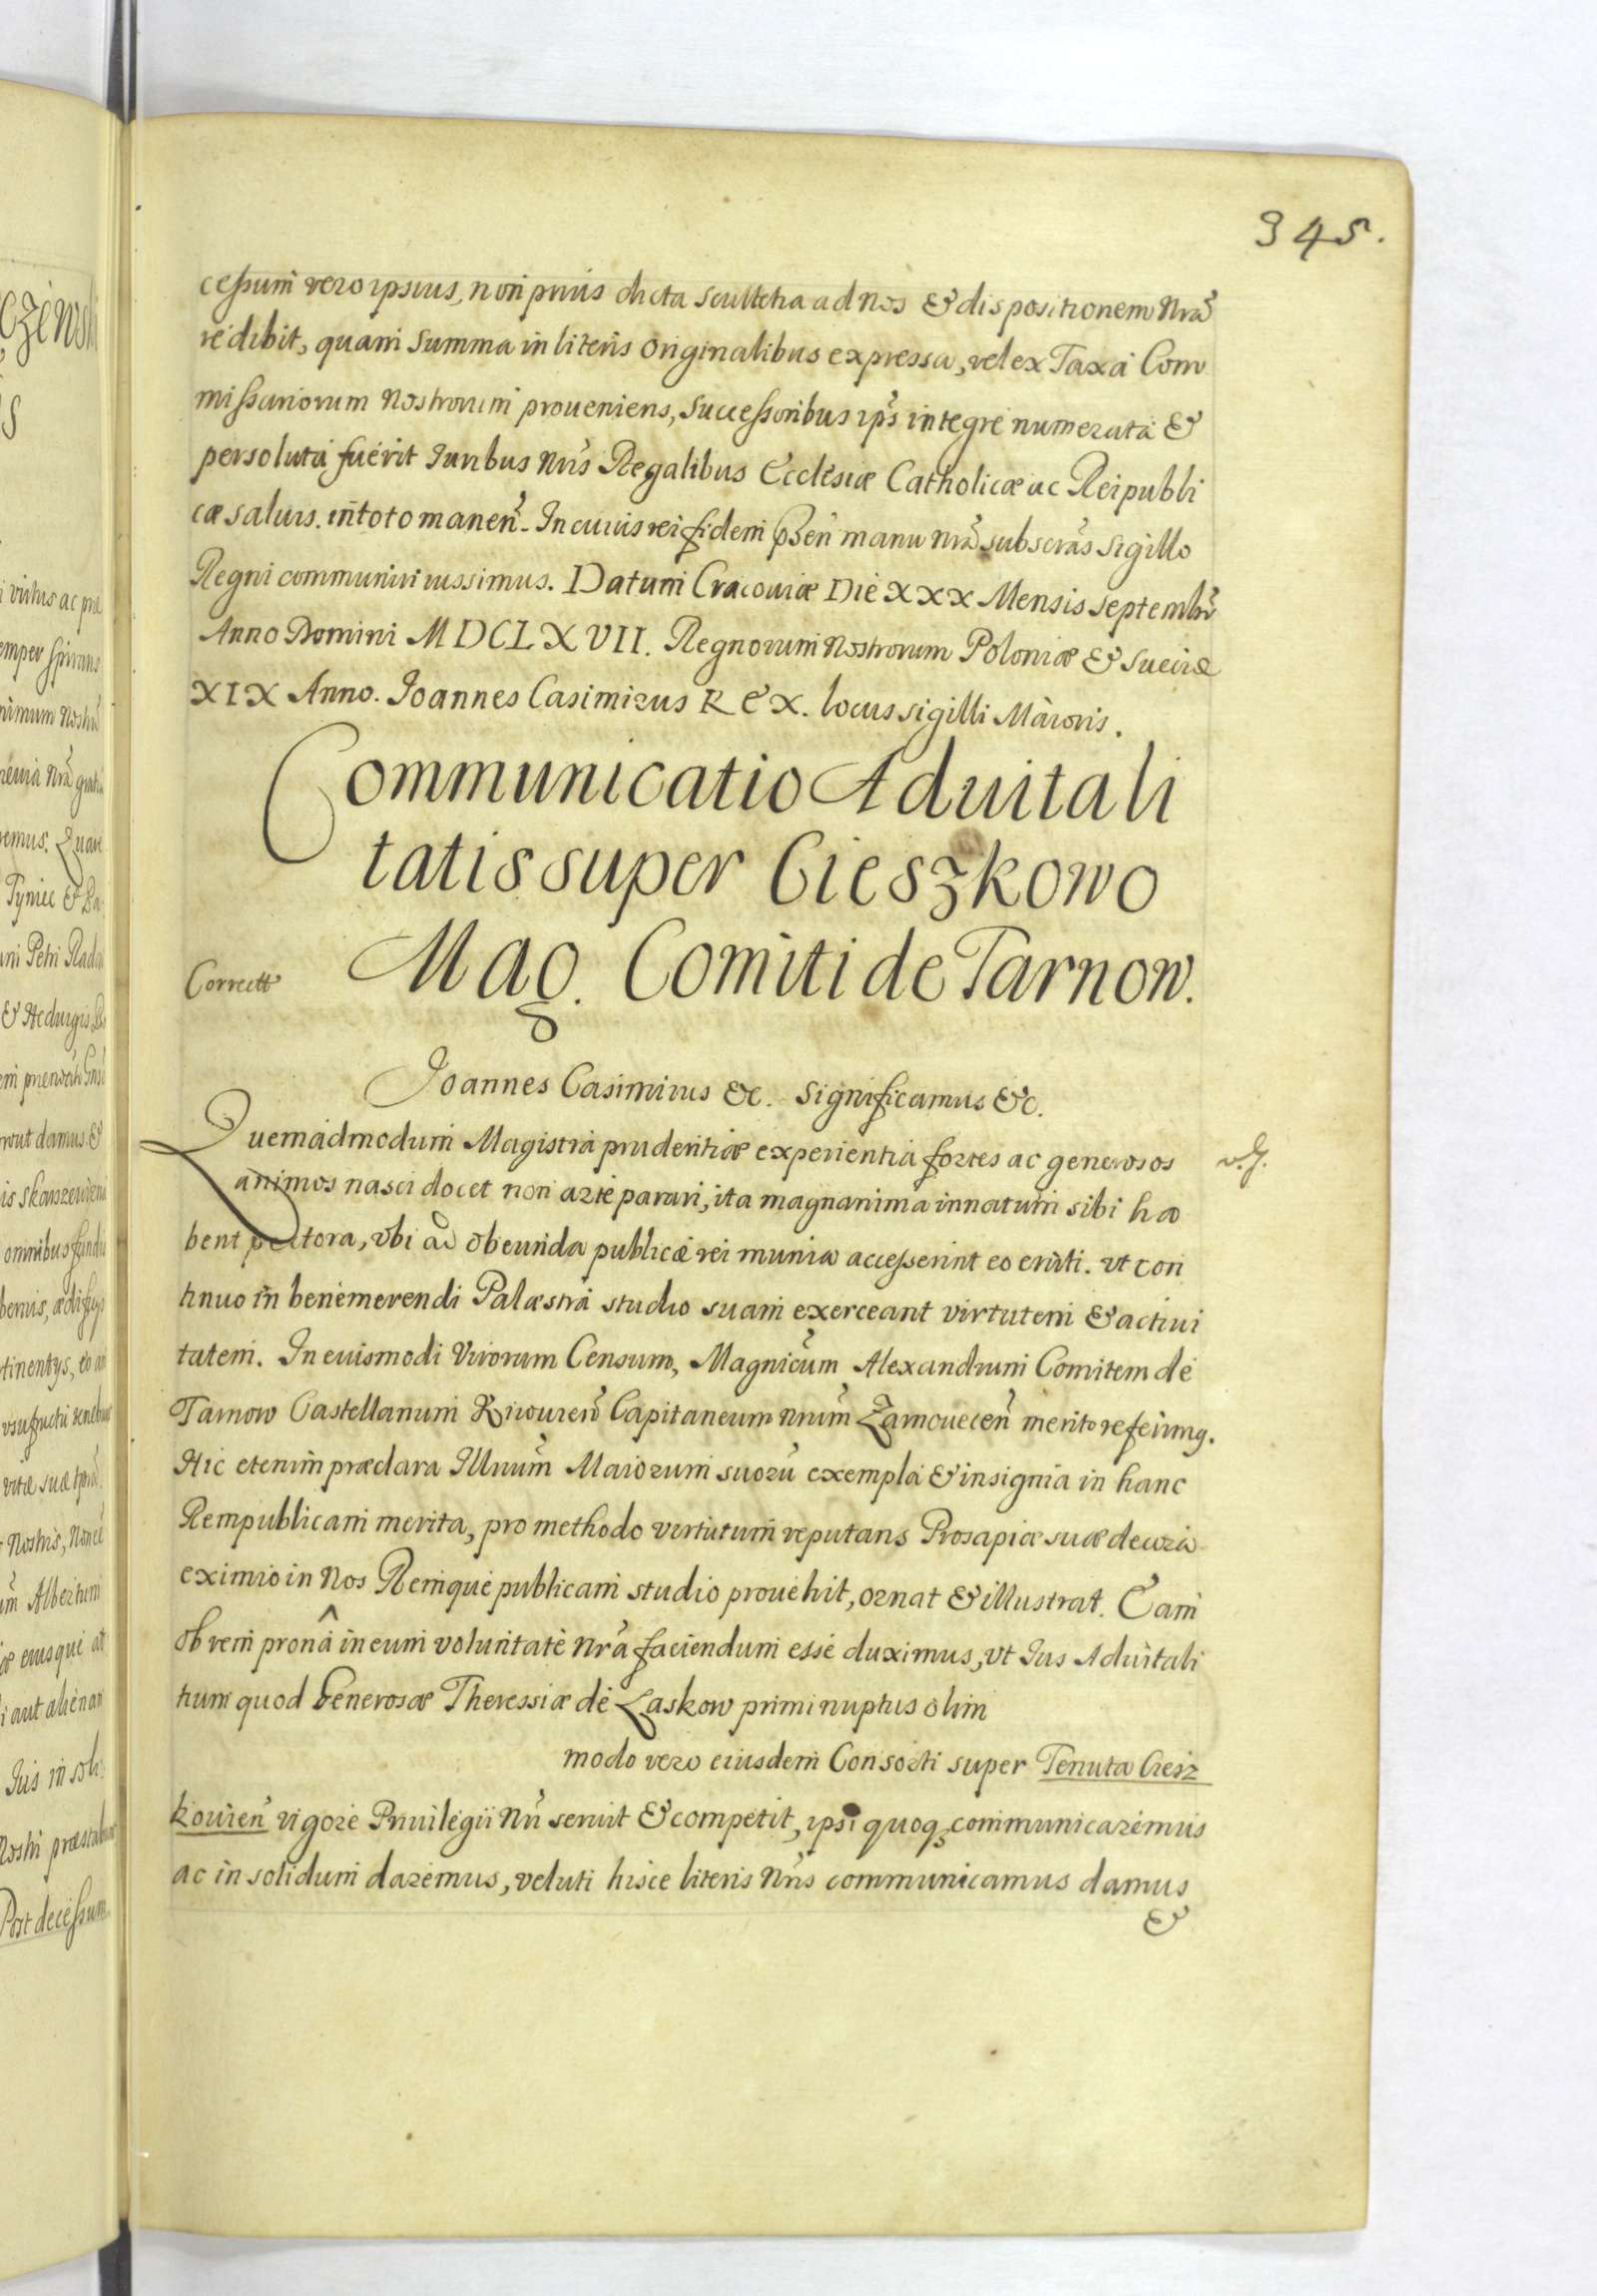 345.
cessum vero ipsius, non prius dicta scultetia ad nos & dispositionem nrã
redibit, quam summa in literis originalibus expressa, vel ex Taxa Com
missariorum nostrorum proueniens, successoribus ips integre numerata &
persoluta fuerit Iuribus nris Regalibus Ecclesiæ Catholicæ ac Reipubli
cæ saluis. in toto manen̄. In cuius rei fidem p̄sen̄ manu nrã subscrãs sigillo
Regni communiri iussimus. Datum Cracouiæ Die XXX Mensis septembr̄
Anno Domini MDCLXVII. Regnorum Nostrorum Poloniæ & Sueciæ
XIX Anno. Joannes Casimirus REX. locus sigilli Maioris.
Communicatio Aduitali
tatis super Cieszkowo
Mag. Comiti de Tarnow.
Correctt
Joannes Casimirus &c. Significamus &c.
Quemadmodum Magistra prudentiæ experientia fortes ac generosos
animos nasci docet non arte parari, ita magnanima innatum sibi ha
bent pectora, vbi ad obeunda publicæ rei munia accesserint eo eniti. vt con
tinuo in benemerendi Palæstra studio suam exerceant virtutem & actiui
tatem. In euismodi Virorum Censum, Magnicũm Alexandrum Comitem de
Tarnow Castellanum Zawouien̄ Capitaneum nrum Zamouecen̄ merito referimq.
Hic etenim præclara Illrium Maiorum suorũ exempla & insignia in hanc
Rempublicam merita, pro methodo virtutum reputans Prosapiæ suæ decora
eximio in Nos Remque publicam studio prouehit, ornat & illustrat. Eam
ob rem pronâ in eum voluntate nrã faciendum esse duximus, vt Ius Aduitali
tium quod Generosæ Theressiæ de Laskow primi nuptus olim
modo vero eiusdem Consorti super Tenuta Ciesz
kouien̄ vigore Priuilegii nri seruit & competit, ipsi quoq, communicaremus
ac in solidum daremus, veluti hisce literis nris communicamus damus
&